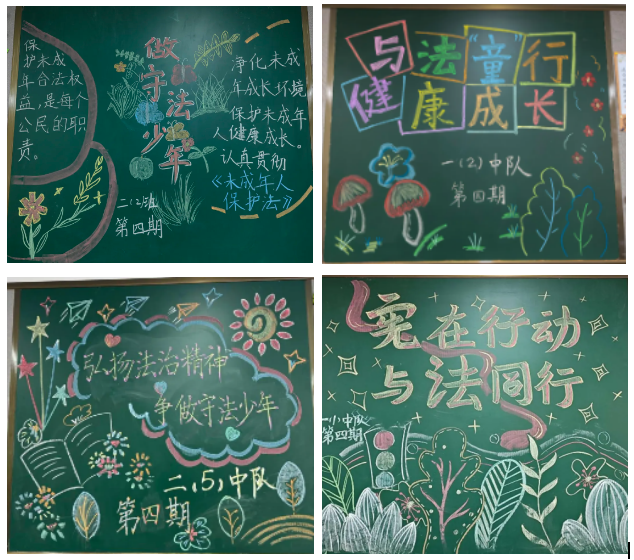 保
护未成
年合法权
益,是每个
公民的职
责。
做守法少年
净化未成
年成长环境
保护未成年
人健康成长。
认真贯彻
《未成年人
保护法》
二(2)班
第四期
与法“童”行
健康成长
一(2)中队
第四期
弘扬法治精神
争做守法少年
二(5)中队
第四期
宪在行动
与法同行
一(1)中队
第四期